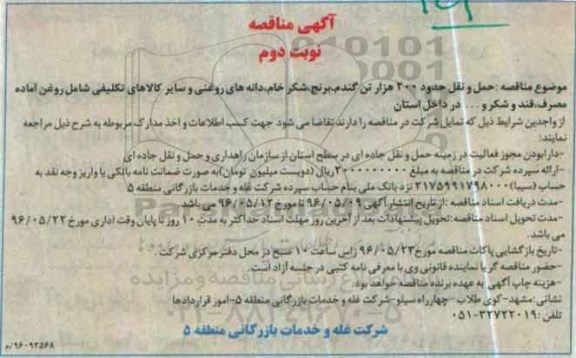 آگهی مناقصه
نوبت دوم
موضوع مناقصه :حمل و نقل حدود ۳۰۰ هزار تن گندم،برنج،شکر خام،دانه های روغنی و سایر کالاهای تکلیفی شامل روغن آماده
مصرف،قند و شکر و ... در داخل استان
از واجدین شرایط ذیل که تمایل شرکت در مناقصه را دارند تقاضا می شود جهت کسب اطلاعات و اخذ مدارک مربوطه به شرح ذیل مراجعه
نمایند:
-دارا بودن مجوز فعالیت در زمینه حمل و نقل جاده ای در سطح استان از سازمان راهداری و حمل و نقل جاده ای
-ارائه سپرده شرکت در مناقصه به مبلغ ۲۰۰۰۰۰۰۰۰۰ریال (دویست میلیون تومان)به صورت ضمانت نامه بانکی یا واریز وجه نقد به
حساب (سیبا)۲۱۷۵۹۹۱۷۹۸۰۰۰ نزد بانک ملی بنام حساب سپرده شرکت غله و خدمات بازرگانی منطقه ۵
-مدت دریافت اسناد مناقصه :از تاریخ انتشار آگهی ۹۶/۰۵/۰۹ تا مورخ ۹۶/۰۵/۱۲ می باشد.
-مدت تحویل اسناد مناقصه:تحویل پیشنهادات بعد از آخرین روز مهلت اسناد حداکثر به مدت ۱۰ روز تا پایان وقت اداری مورخ ۹۶/۰۵/۲۲
می باشد.
-تاریخ بازگشایی پاکات مناقصه مورخ ۹۶/۰۵/۲۳ راس ساعت ۱۰ صبح در محل دفتر مرکزی شرکت
-حضور مناقصه گر یا نماینده قانونی وی با معرفی نامه کتبی در جلسه آزاد است
-هزینه چاپ آگهی به عهده برنده مناقصه خواهد بود.
نشانی:مشهد-کوی طلاب -چهارراه سیلو-شرکت غله و خدمات بازرگانی منطقه ۵-امور قراردادها
تلفن:۳۲۷۲۲۰۱۹-۰۵۱
شرکت غله و خدمات بازرگانی منطقه ۵
۹۶۰۹۳۵۶۸/م